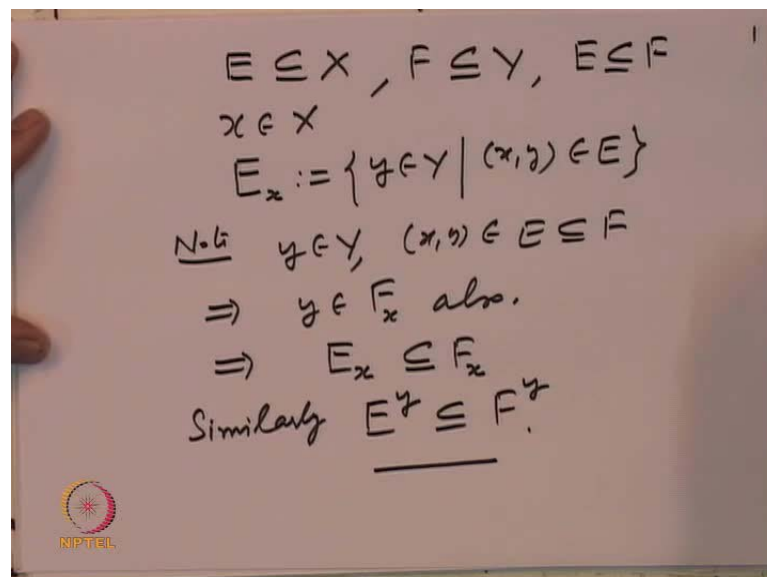 E ⊆ X, F ⊆ Y, E ⊆ F
1
x ∈ X
E_x := {y ∈ Y | (x,y) ∈ E}
Note y ∈ Y, (x,y) ∈ E ⊆ F
⇒ y ∈ F_x also.
⇒ E_x ⊆ F_x
Similarly E^y ⊆ F^y.
NPTEL